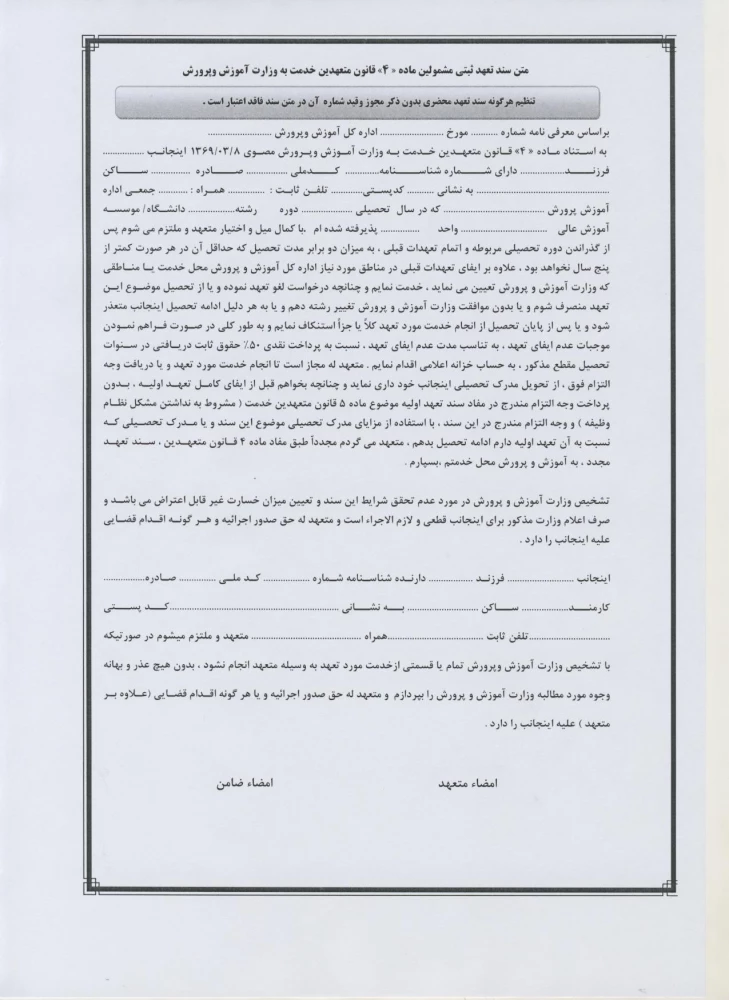 متن سند تعهد ثبتی مشمولین ماده « ۴» قانون متعهدین خدمت به وزارت آموزش وپرورش
تنظیم هرگونه سند تعهد محضری بدون ذکر مجوز وقید شماره آن در متن سند فاقد اعتبار است .
براساس معرفی نامه شماره .......... مورخ ...................... اداره کل آموزش وپرورش ......................
به استناد ماده « ۴» قانون متعهدین خدمت به وزارت آموزش وپرورش مصوی ۱۳۶۹/۰۳/۸ اینجانب ..............
فرزند................ دارای شماره شناسنامه............ کدملی .............. صادره .............. ساکن
.............................................. به نشانی .......... کدپستی.............. تلفن ثابت : ............. همراه : .......... جمعی اداره
آموزش پرورش .................................. که در سال تحصیلی .................. دوره رشته................ دانشگاه/ موسسه
آموزش عالی .............................. واحد .............. پذیرفته شده ام .با کمال میل و اختیار متعهد و ملتزم می شوم پس
از گذراندن دوره تحصیلی مربوطه و اتمام تعهدات قبلی ، به میزان دو برابر مدت تحصیل که حداقل آن در هر صورت کمتر از
پنج سال نخواهد بود ، علاوه بر ایفای تعهدات قبلی در مناطق مورد نیاز اداره کل آموزش و پرورش محل خدمت یا مناطقی
که وزارت آموزش و پرورش تعیین می نماید ، خدمت نمایم و چنانچه درخواست لغو تعهد نموده و یا از تحصیل موضوع این
تعهد منصرف شوم و یا بدون موافقت وزارت آموزش و پرورش تغییر رشته دهم و یا به هر دلیل ادامه تحصیل اینجانب متعذر
شود و یا پس از پایان تحصیل از انجام خدمت مورد تعهد کلاً یا جزأ استنکاف نمایم و به طور کلی در صورت فراهم نمودن
موجبات عدم ایفای تعهد ، به تناسب مدت عدم ایفای تعهد ، نسبت به پرداخت نقدی ۵۰٪ حقوق ثابت دریافتی در سنوات
تحصیل مقطع مذکور ، به حساب خزانه اعلامی اقدام نمایم . متعهد له مجاز است تا انجام خدمت مورد تعهد و یا دریافت وجه
التزام فوق ، از تحویل مدرک تحصیلی اینجانب خود داری نماید و چنانچه بخواهم قبل از ایفای کامل تعهد اولیه ، بدون
پرداخت وجه التزام مندرج در مفاد سند تعهد اولیه موضوع ماده ۵ قانون متعهدین خدمت ( مشروط به نداشتن مشکل نظام
وظیفه ) و وجه التزام مندرج در این سند ، با استفاده از مزایای مدرک تحصیلی موضوع این سند و یا مدرک تحصیلی که
نسبت به آن تعهد اولیه دارم ادامه تحصیل بدهم ، متعهد می گردم مجدداً طبق مفاد ماده ۴ قانون متعهدین ، سند تعهد
مجدد ، به آموزش و پرورش محل خدمتم ،بسپارم .
تشخیص وزارت آموزش و پرورش در مورد عدم تحقق شرایط این سند و تعیین میزان خسارت غیر قابل اعتراض می باشد و
صرف اعلام وزارت مذکور برای اینجانب قطعی و لازم الاجراء است و متعهد له حق صدور اجرائیه و هر گونه اقدام قضایی
علیه اینجانب را دارد .
اینجانب ...................... فرزند ................ دارنده شناسنامه شماره ................ کد ملی ............ صادره..............
کارمند................ ساکن ........................ به نشانی ........................................................کد پستی
............................تلفن ثابت ................................همراه ...................................... متعهد و ملتزم میشوم در صورتیکه
با تشخیص وزارت آموزش وپرورش تمام یا قسمتی ازخدمت مورد تعهد به وسیله متعهد انجام نشود ، بدون هیچ عذر و بهانه
وجوه مورد مطالبه وزارت آموزش و پرورش را بپردازم و متعهد له حق صدور اجرائیه و یا هر گونه اقدام قضایی (علاوه بر
متعهد ) علیه اینجانب را دارد .
امضاء متعهد امضاء ضامن